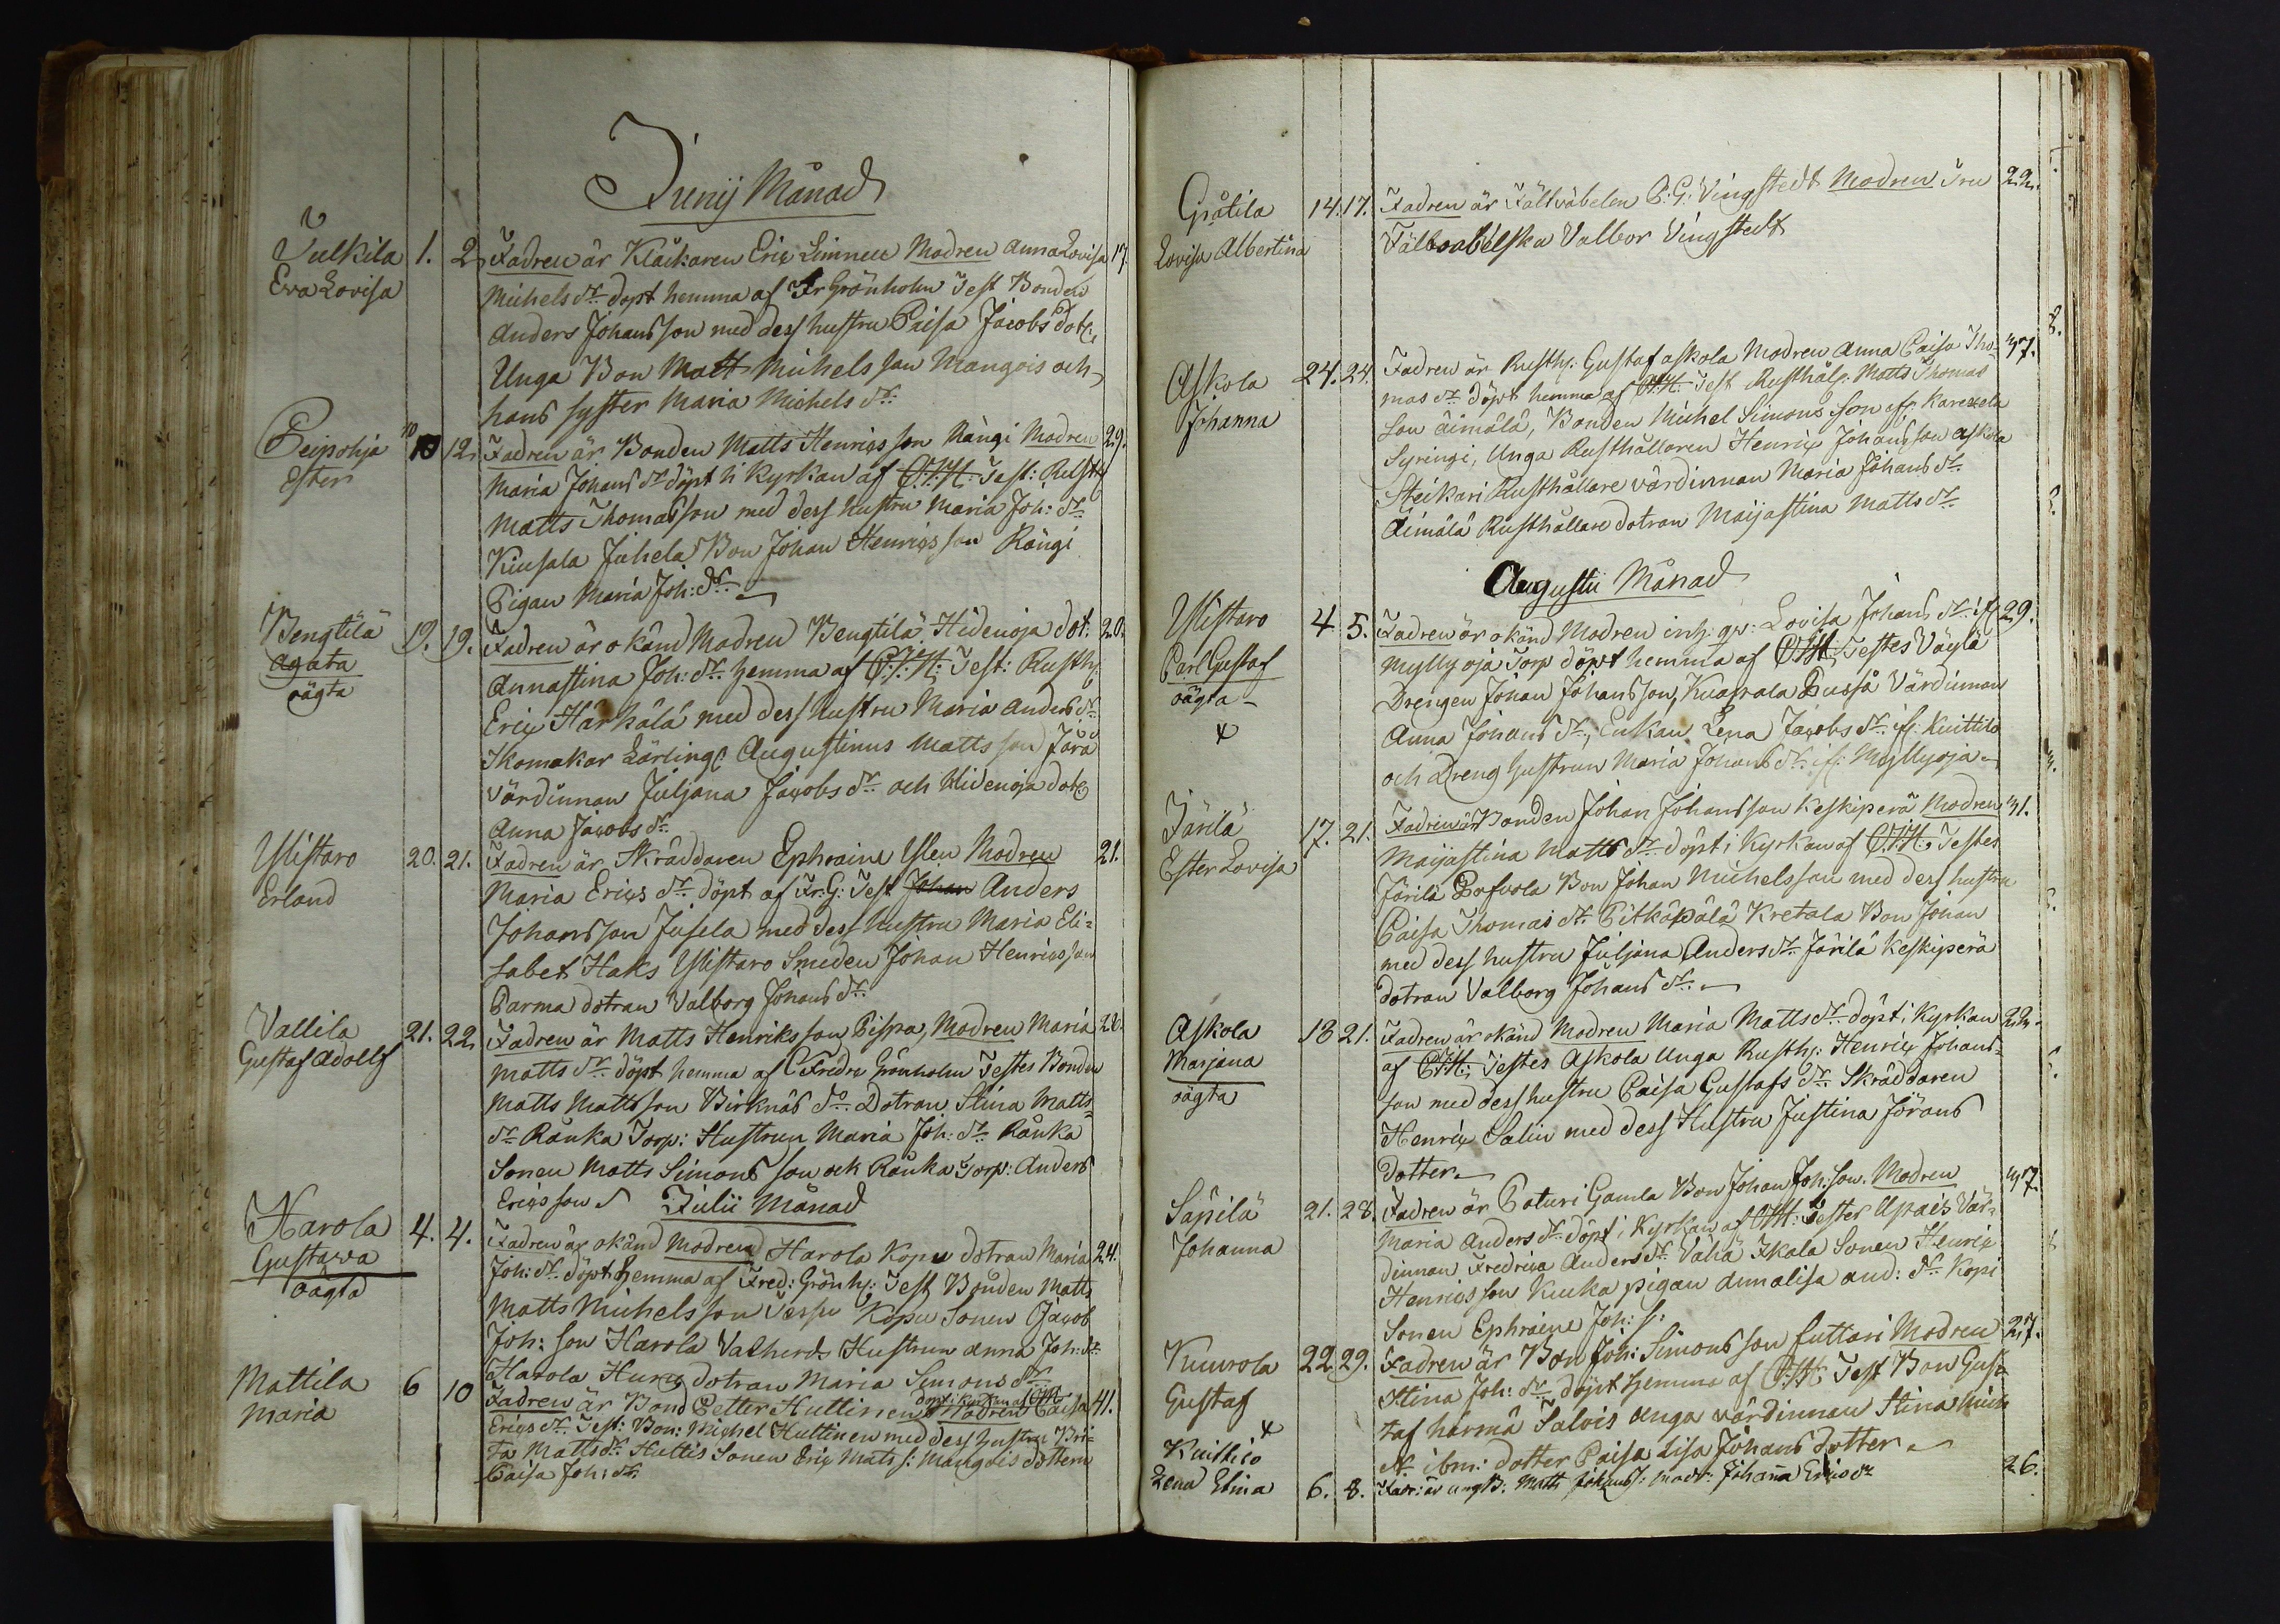 Junij Månad
Julkila 1. 2. Fadren är Klåckaren Eric Limnell Modren Anna Lovisa 17.
Eva Lovisa Michels dr. döpt hemma af Fr Grönholm Test Bonden
Anders Johansson med dess hustru Caisa Jacobs dotr.
Unga Bon Matt Michels son Mangois och
hans syster Maria Michels dr.
Peipohja 10 12. Fadren är Bonden Matts Henrics son Rängi Modren 29.
Ester Maria Johans dr döpt i Kyrkan af C.J.H. Test: Rusth
Matts Thomasson med dess hustru Maria Joh: dr.
Kiusala Juhela Bon Johan Henrics son Rängi
Pigan Maria Joh: dr.
Bengtilä 19. 19. Fadren är okänd Modren Bengtilä Hidenoja dot: 20.
Agata Annastina Joh: dr. hemma af C.J.H: Test: Rusth:
oägta Eric Härkälä med dess hustru Maria Anders dr.
Skomakar Lärling: Augustinus Matts son Jära
värdinnan Juljana Jacobs dr. och Hidenoja dotr
Anna Jacobs dr.
Ylistaro 20. 21. Fadren är Skräddaren Ephraim Ylen Modren 21.
Erland Maria Erics dr. döpt af Fr: G: Test Johan Anders
Johansson Jusela med dess hustru Maria Eli=
sabet Haks Ylistaro Smeden Johan Henricsson
Parma dotran Valborg Johans dr.
Vallila 21. 22. Fadren är Matts Henriksson Pispa, Modren Maria 28.
Gustaf Adolf Matts dr. döpt hemma af C Fredr Grönholm Testes Bonden
Matts Mattsson Birknäs do. Dotran Stina Matts=
dr. Rauka Torp: Hustrun Maria Joh: dr. Rauka
Sonen Matts Simons son och Rauka Torp: Anders
Ericsson
Julii Månad
Harola 4. 4. Fadren är okänd Modren Harola Kopu dotran Maria 24.
Gustava Joh: dr. döpt hemma af Fred: Grönh: Test Bonden Matts
oägta Matts Michelsson Jessu Kopu Sonen Jacob
Joh: son Harola Vatherds Hustrun Anna Joh: dr.
Harola Huru dotran Maria Simons dr.
döpt i Kyrkan af CJH
Mattila 6 10 Fadren är Bond Petter Huttinen Modren Caisa 41.
Maria Erics dr. Test: Bon: Michel Huttinen med dess hustru Bri=
ta Matts dr. Huttis Sonen Eric Mats s: Mangois dottern
Caisa Joh: dr.
Gråtila 14. 17. Fadren är Fältväbelen C: G: Vingstedt Modren Fru 22.
Lovisa Albertina Fältväbelska Valbor Vingstedt
Askola 24. 24. Fadren är Rusth: Gustaf Askola Modren Anna Caisa Tho= 37.
Johanna mas dr. döpt hemma af C.J.H. Test Rusthåls: Matts Thomas
son äimälä, Bonden Michel Simons son ifr. Karexela
Syringi, Unga Rusthållaren Henric Johansson Askola
Steikari Rusthållare värdinnan Maria Johans dr.
Äimälä Rusthållare dotran Maijastina Matts dr.
Augustii Månad
Ylistaro 4 5. Fadren är okänd Modren inh: qv: Lovisa Johans dr. if 29.
Carl Gustaf Myllyoja Torp döpt hemma af CJH Testes Väylä
oägta Drengen Johan Johansson, Knapala Dussä Värdinnan
x Anna Johans dr., Enkan Lena Jacobs dr. if: Kuittilo
och Dreng hustrun Maria Johans dr. if: Myllyoja
Järilä 17. 21. Fadren är Bonden Johan Johansson Keskiperä Modren 31.
Ester Lovisa Maijastina Matts dr. döpt i Kyrkan af C.J.H. Testes
Järilä Bon Johan Michelsson med dess hustru
Caisa Thomas dr. Pitkäpälä Kretala Bon Johan
med dess hustru Juljana Anders dr. Järilä Keskiperä
dotran Valborg Johans dr.
Askola 18 21. Fadren är okänd Modren Maria Matts dr. döpt i Kyrkan 22.
Marjana af CJH: Testes Askola Unga Rusth: Henric Johans=
oägta son med dess hustru Caisa Gustafs dr. Skräddaren
Henric Salin med dess Hustru Justina Jörans
dotter
Säpilä 21. 28. Fadren är Paturi Gamla Bon Johan Joh: son. Modren 37.
Johanna Maria Anders dr. döpt i Kyrkan af CJH: Tester Upais Vär=
dinnan Fredrica Anders dr. Vähä Ikala Sonen Henric
Henricsson Kuuka pigan Annalisa And: dr. Kopi
Sonen Ephraim Joh: s:
Kuurola 22. 29. Fadren är Bon Joh: Simons son suttari Modren 27.
Gustaf Stina Joh: dr. döpt hemma af CJH Test Bon Gus=
x taf härmä Salvis Unga värdinnan Stina Mich
dr. ibm: dotter Caisa Lisa Johans dotter
Kaithio
Lena Elina 6. 8. Fadr: är ung B: Matts Johans s: modr: Johanna Erics dr 26.